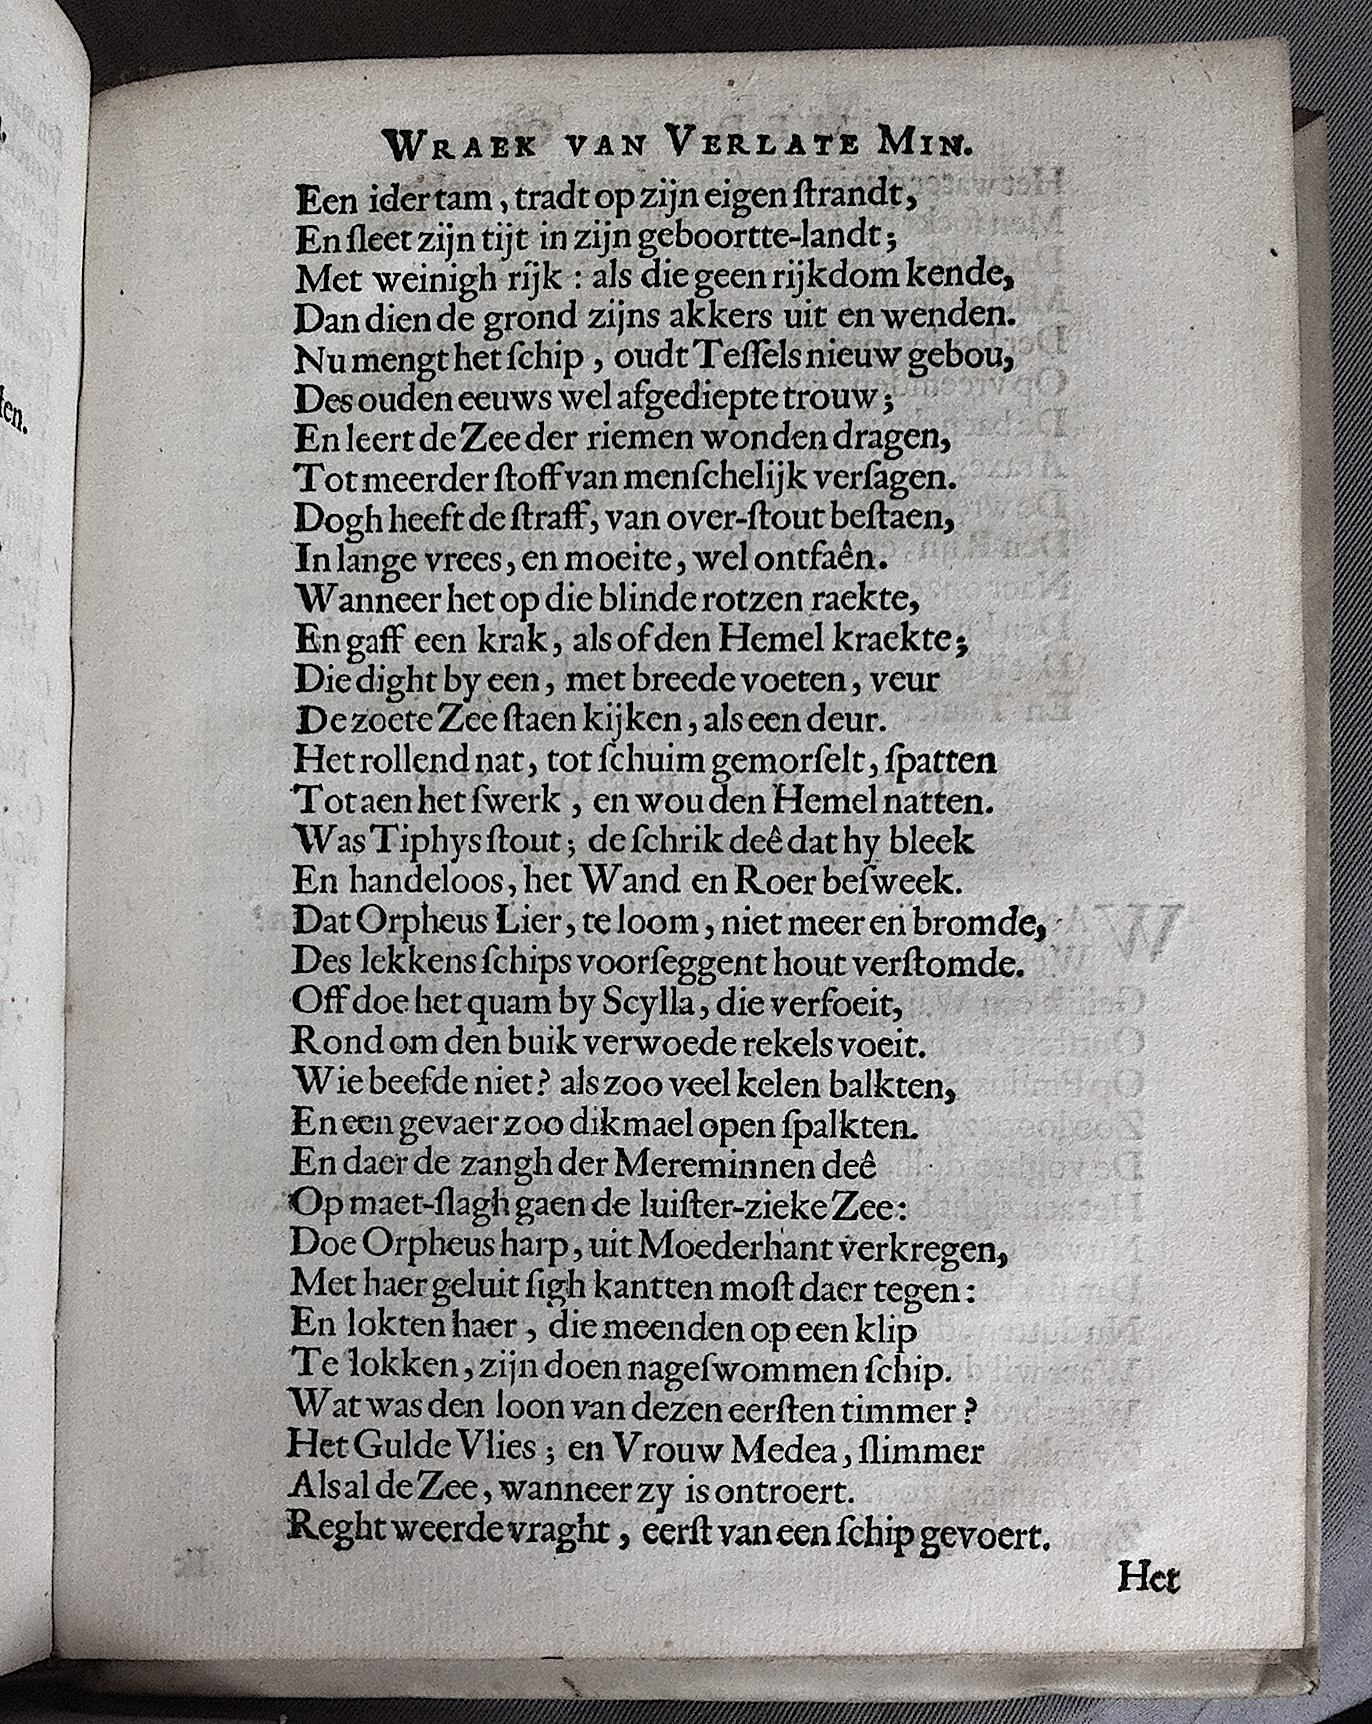 WRAEK VAN VERLATE MIN.
Een ider tam, tradt op zijn eigen ſtrandt,
En ſleet zijn tijt in zijn geboortte-landt;
Met weinigh rijk : als die geen rijkdom kende,
Dan dien de grond zijns akkers uit en wenden.
Nu mengt het ſchip, oudt Teſſels nieuw gebou,
Des ouden eeuws wel afgediepte trouw;
En leert de Zee der riemen wonden dragen,
Tot meerder ſtoff van menſchelijk verſagen.
Dogh heeft de ſtraff, van over-ſtout beſtaen,
In lange vrees, en moeite, wel ontfaên.
Wanneer het op die blinde rotzen raekte,
En gaff een krak, als of den Hemel kraekte;
Die dight by een, met breede voeten, veur
De zoete Zee ſtaen kijken, als een deur.
Het rollend nat, tot ſchuim gemorſelt, ſpatten
Tot aen het ſwerk, en wou den Hemel natten.
Was Tiphys ſtout; de ſchrik deê dat hy bleek
En handeloos, het Wand en Roer beſweek.
Dat Orpheus Lier, te loom, niet meer en bromde,
Des lekkens ſchips voorſeggent hout verſtomde.
Off doe het quam by Scylla, die verfoeit,
Rond om den buik verwoede rekels voeit.
Wie beefde niet? als zoo veel kelen balkten,
En een gevaer zoo dikmael open ſpalkten.
En daer de zangh der Mereminnen deê
Op maet-ſlagh gaen de luiſter-zieke Zee:
Doe Orpheus harp, uit Moederhant verkregen,
Met haer geluit ſigh kantten moſt daer tegen:
En lokten haer, die meenden op een klip
Te lokken, zijn doen nageſwommen ſchip.
Wat was den loon van dezen eerſten timmer?
Het Gulde Vlies; en Vrouw Medea, ſlimmer
Als al de Zee, wanneer zy is ontroert.
Reght weerde vraght, eerſt van een ſchip gevoert.
Het